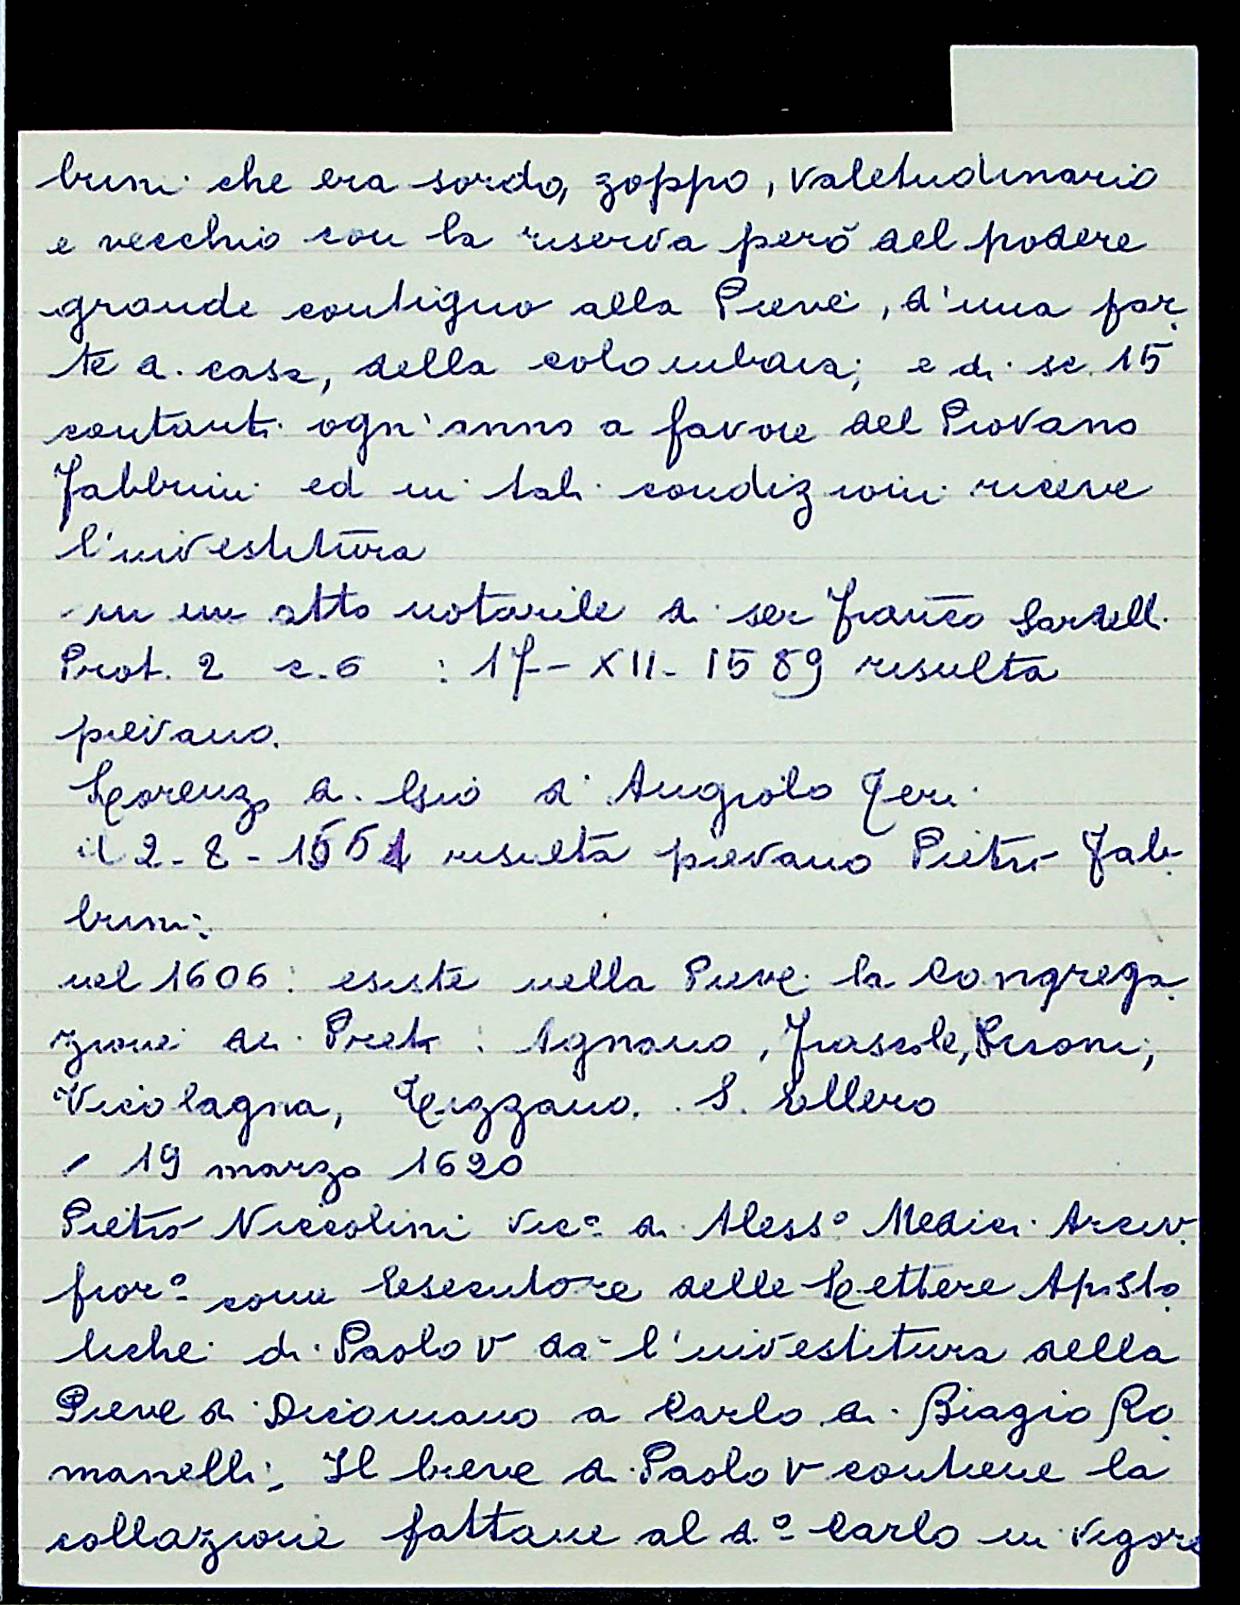 brini che era sordo, zoppo, valetudinario
e vecchio con la riserva però del podere
grande contiguo alla Pieve, d'una par
te di casa, della colombaia; e di sc. 15
contanti ogn'anno a favore del Piovano
Fabbrini ed in tali condizioni riceve
l'investitura
- in un atto notarile di ser Franco
Prot. 2 c. 6 : 17 - XII - 1589 risulta
pievano.
Lorenzo di Giò d'Angiolo Neri
il 2 - 8 - 1551 risulta pievano Pietro Fab
brini:
nel 1606: esiste nella Pieve la Congrega
zione dei Preti: Agnano, Frascole,
Vicolagna, S. Ellero
- 19 marzo 1620
Pietro Niccolini Vicº di Alessº Medici Arciv.
fiorº come Esecutore delle Lettere Aposto
liche di Paolo V dà l'investitura della
Pieve di Dicomano a Carlo di Biagio Ro
manelli; Il breve di Paolo V contiene la
collazione fattane al dº Carlo in vigore